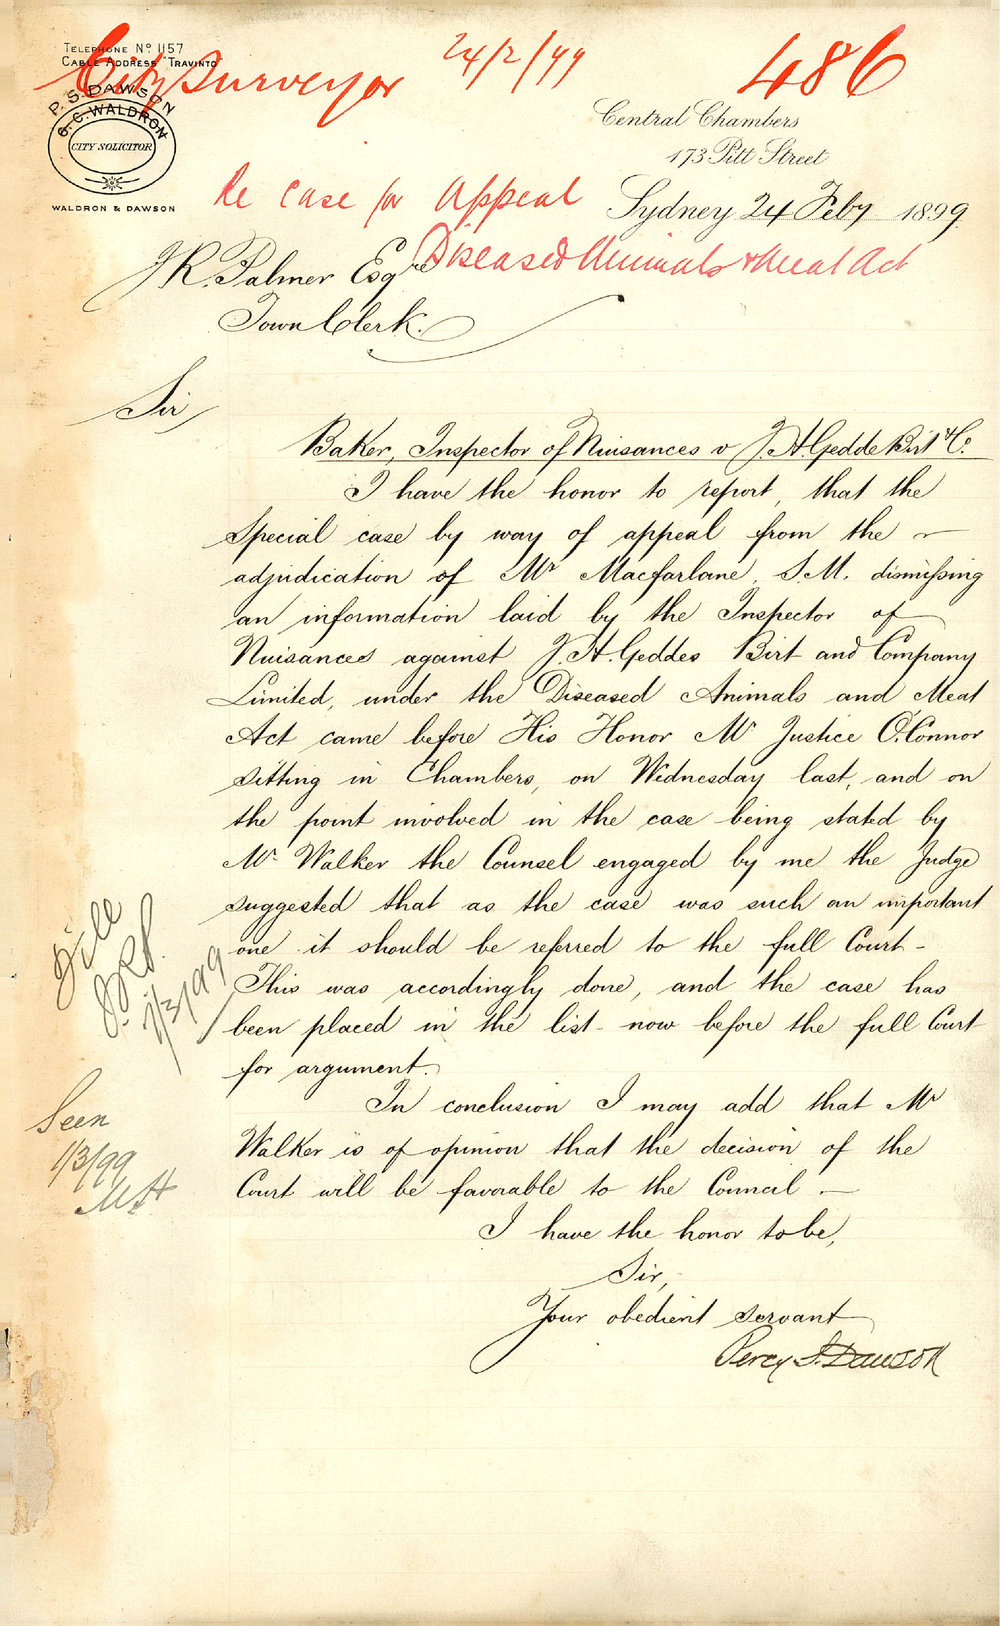 City Surveyor 24/2/99 486
TELEPHONE No 1157
CABLE ADDRESS "TRAVINTO"
P. S. DAWSON
G. C. WALDRON
CITY SOLICITOR
WALDRON & DAWSON
Central Chambers
173 Pitt Street
Sydney 24 Feby 1899
Re case for Appeal
Diseased Animals & Meat Act
J R. Palmer Esqre
Town Clerk.
Sir
Baker, Inspector of Nuisances v J. H. Gedde Birt & Co.
I have the honor to report, that the
Special case by way of appeal from the
adjudication of Mr Macfarlane, S.M. dismissing
an information laid by the Inspector of
Nuisances against J. H. Geddes Birt and Company
Limited, under the Diseased Animals and Meat
Act came before His Honor Mr Justice O'Connor
sitting in Chambers, on Wednesday last, and on
the point involved in the case being stated by
Mr. Walker the Counsel engaged by me the Judge
suggested that as the case was such an important
one it should be referred to the full Court -
This was accordingly done, and the case has
been placed in the list now before the full Court
for argument.
In conclusion I may add that Mr
Walker is of opinion that the decision of the
Court will be favorable to the Council. —
I have the honor to be,
Sir,
Your obedient servant
Percy S. Dawson
1/3/99
Seen
1/3/99